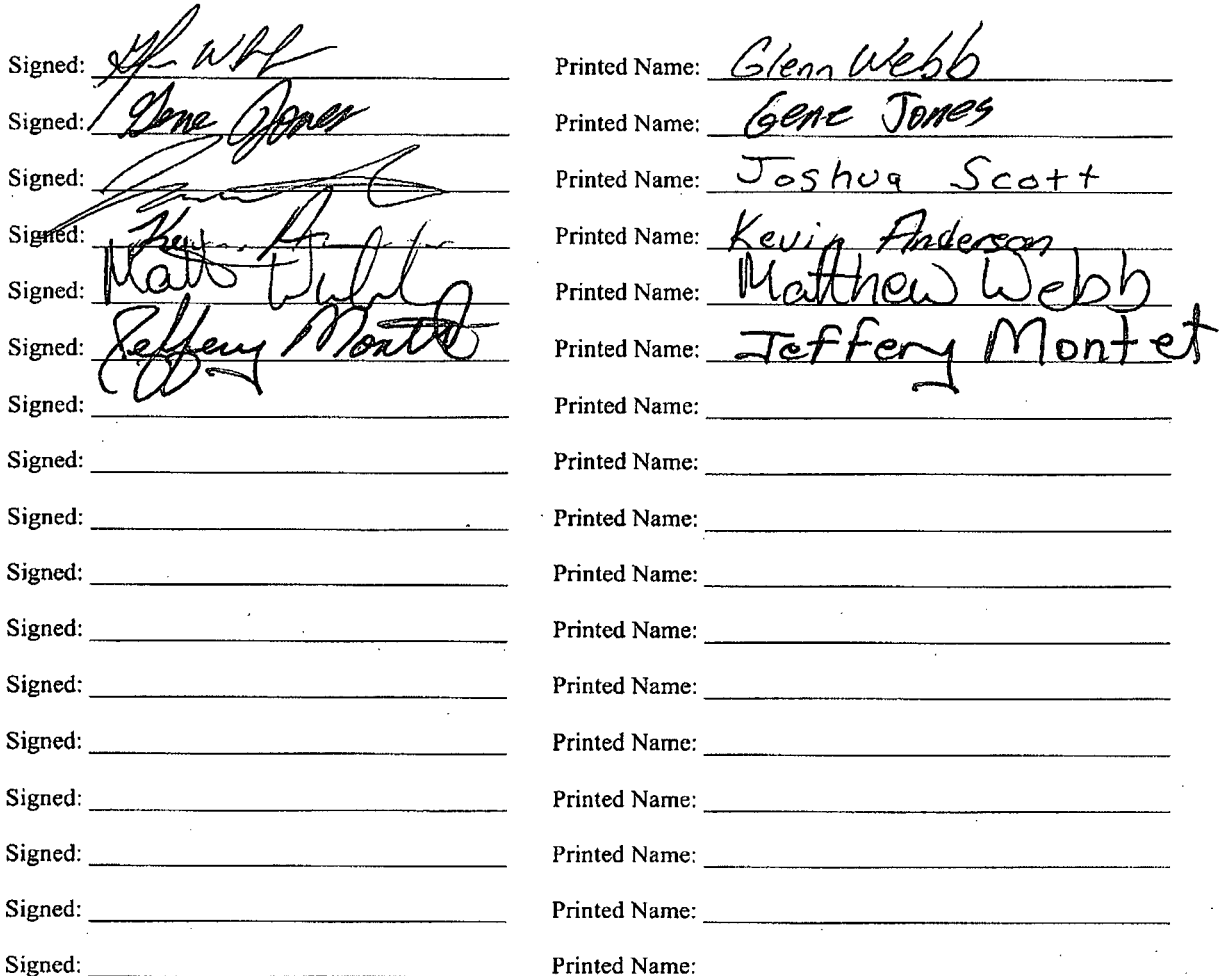 Signed: Printed Name: Glenn Webb
Signed: Gene Jones Printed Name: Gene Jones
Signed: Printed Name: Joshua Scott
Signed: Printed Name: Kevin Anderson
Signed: Matt Webb Printed Name: Matthew Webb
Signed: Jeffery Montet Printed Name: Jeffery Montet
Signed: Printed Name:
Signed: Printed Name:
Signed: Printed Name:
Signed: Printed Name:
Signed: Printed Name:
Signed: Printed Name:
Signed: Printed Name:
Signed: Printed Name:
Signed: Printed Name:
Signed: Printed Name:
Signed: Printed Name: